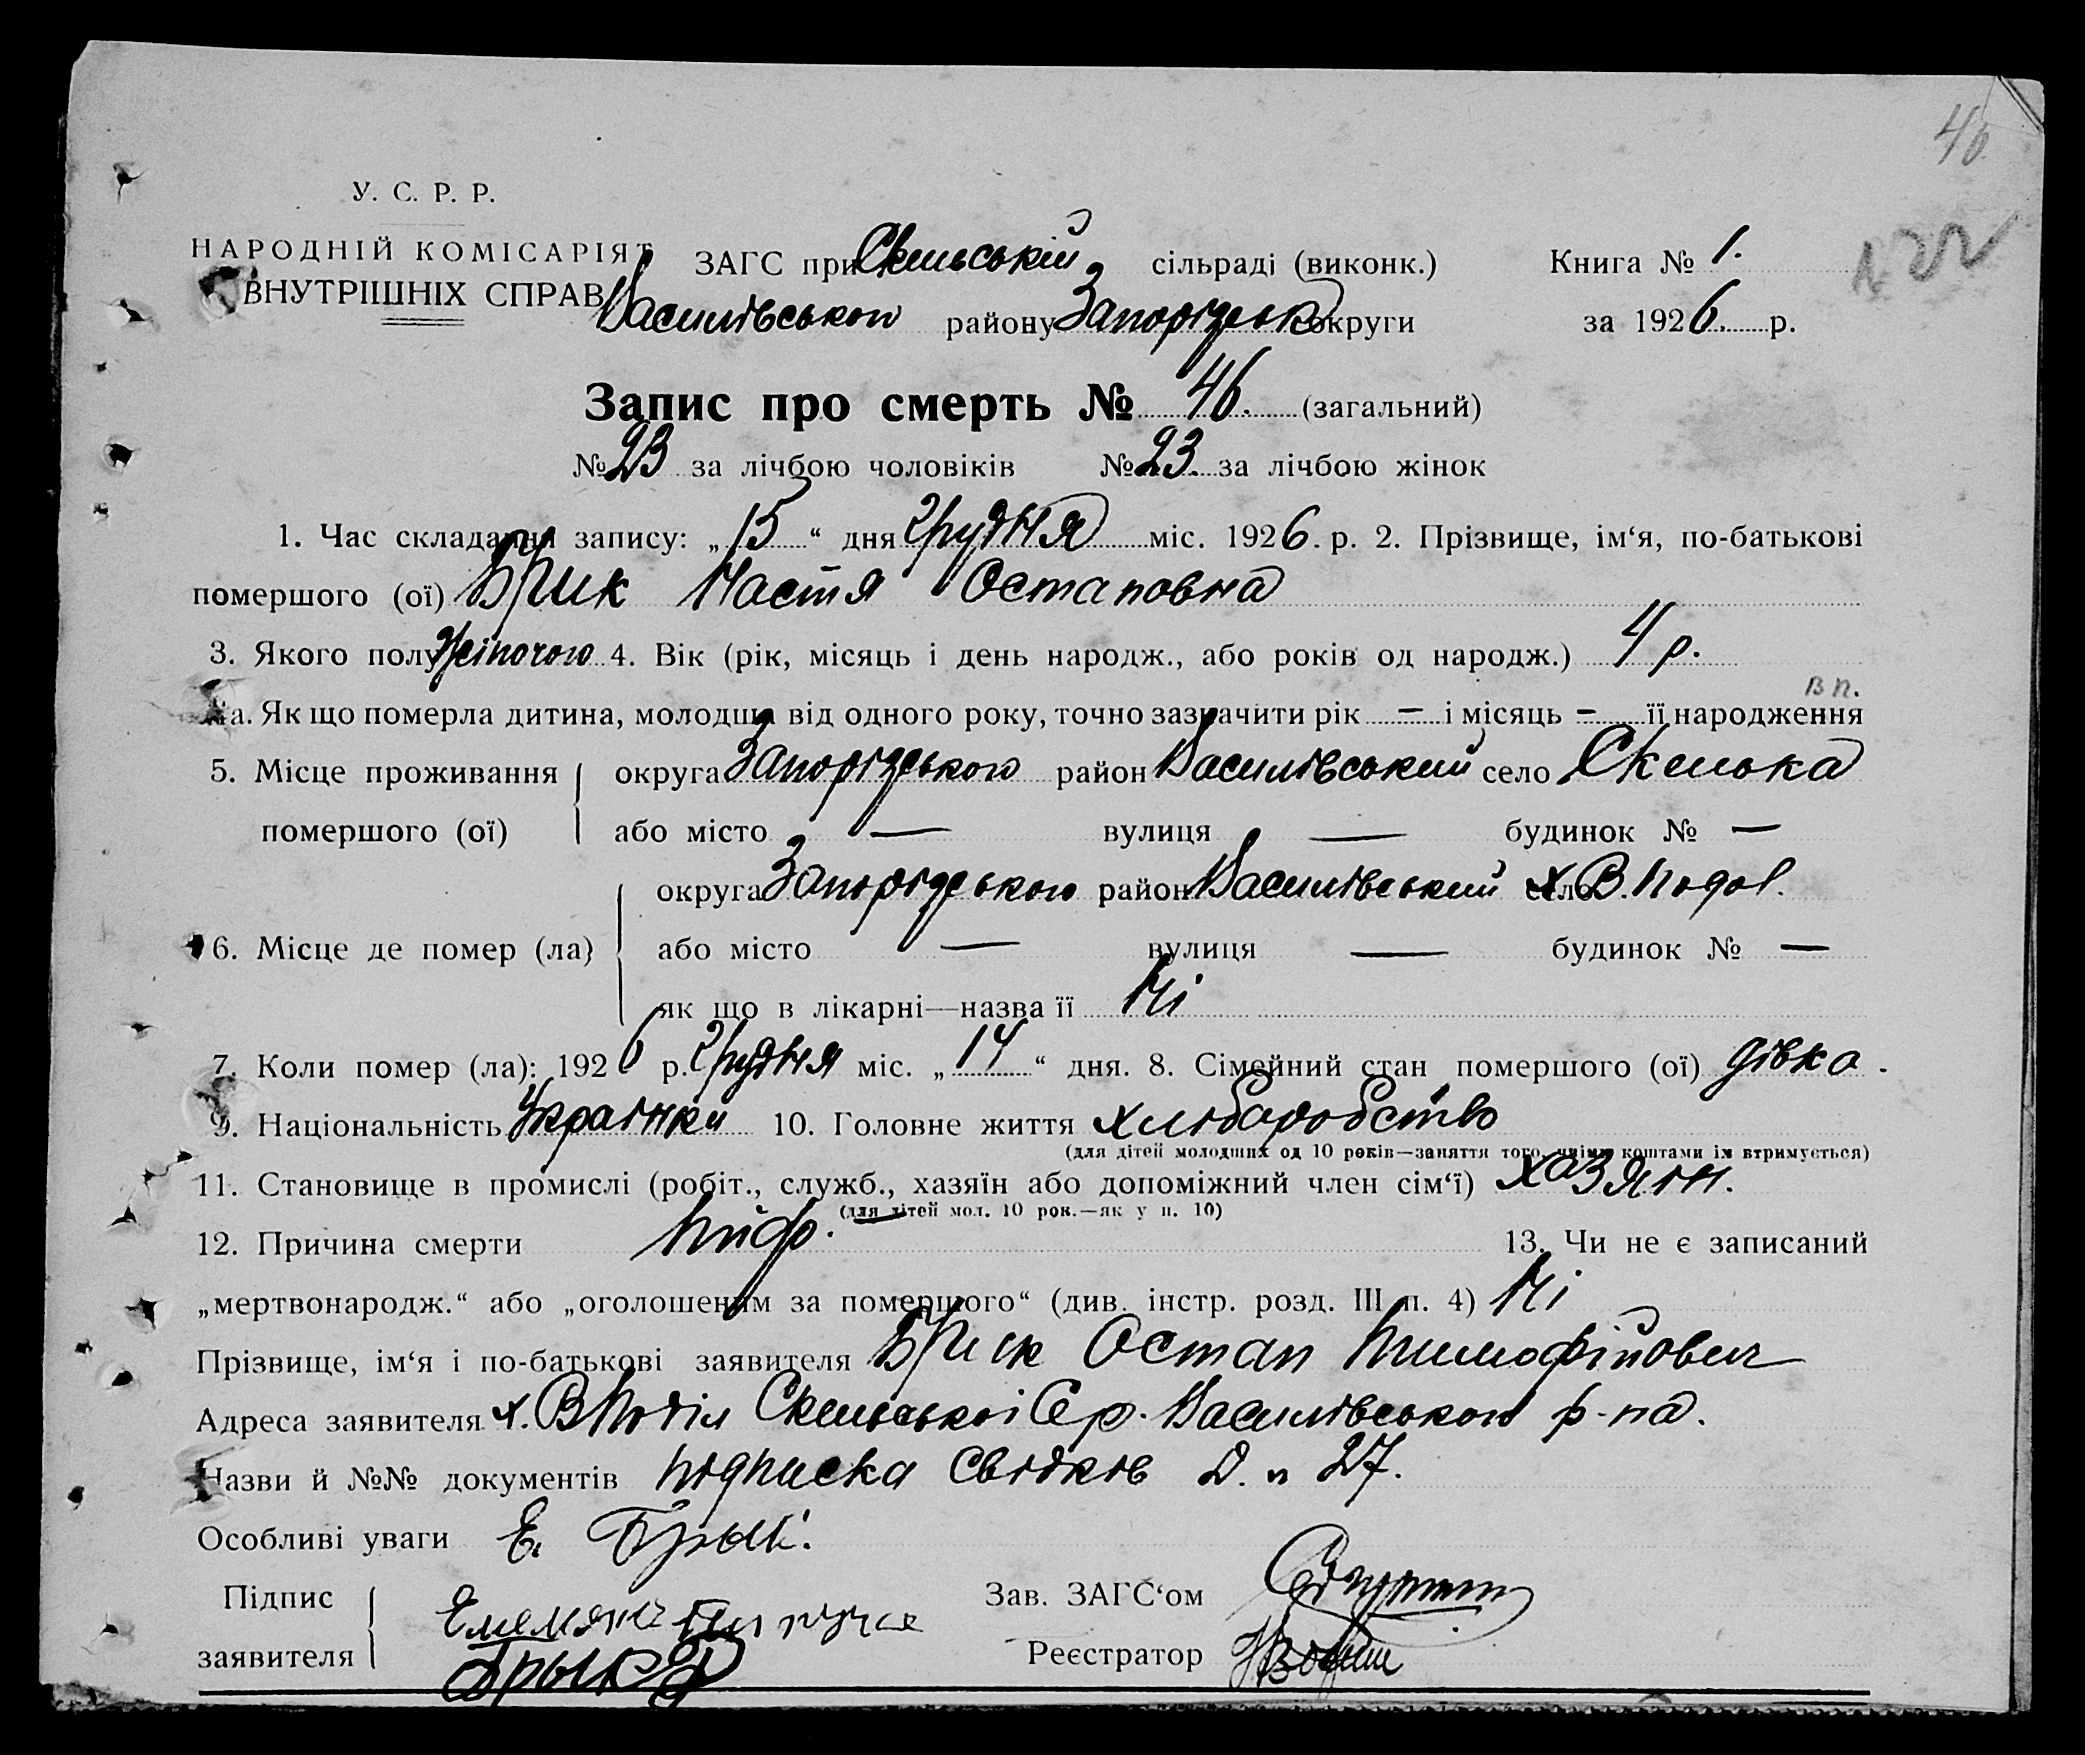 46
У. С. Р. Р.
НАРОДНІЙ КОМІСАРІЯТ
ВНУТРІШНІХ СПРАВ
ЗАГС при Скельській сільраді (виконк.)
Книга № 1.
№ 22
Василівського району Запорізськ округи
за 1926. р.
Запис про смерть № 46. (загальний)
№ 23 за лічбою чоловіків № 23. за лічбою жінок
1. Час складання запису: „15“ дня Грудня міс. 1926. р. 2. Прізвище, ім‘я, по-батькові
помершого (ої) Брик Настя Остаповна
3. Якого полу Жіночого 4. Вік (рік, місяць і день народж., або років од народж.) 4 р.
в п.
4а. Як що померла дитина, молодша від одного року, точно зазначити рік — і місяць — її народження
5. Місце проживання округа Запорізського район Василівський село Скелька
помершого (ої) або місто — вулиця — будинок № —
округа Запорізського район Василівський село х. В. Подол.
6. Місце де помер (ла) або місто — вулиця — будинок № —
як що в лікарні—назва її Ні
7. Коли помер (ла): 1926 р. Грудня міс. „14“ дня. 8. Сімейний стан помершого (ої) дівка.
9. Національність Українки 10. Головне життя хліборобство
(для дітей молодших од 10 років—заняття того, чиїми коштами їх втримується)
11. Становище в промислі (робіт., служб., хазяїн або допоміжний член сім‘ї) хозяїн.
(для дітей мол. 10 рок.—як у п. 10)
12. Причина смерти Тиф. 13. Чи не є записаний
„мертвонародж.“ або „оголошеним за помершого“ (див. інстр. розд. III п. 4) Ні
Прізвище, ім‘я і по-батькові заявителя Брик Остап Тимофійович
Адреса заявителя х. В Поділ Скельської С/р. Василівського р-на.
Назви й №№ документів підписка свідків Д. № 27.
Особливі уваги Е. Брык.
Підпис
заявителя
Брык
Зав. ЗАГС‘ом
Реєстратор